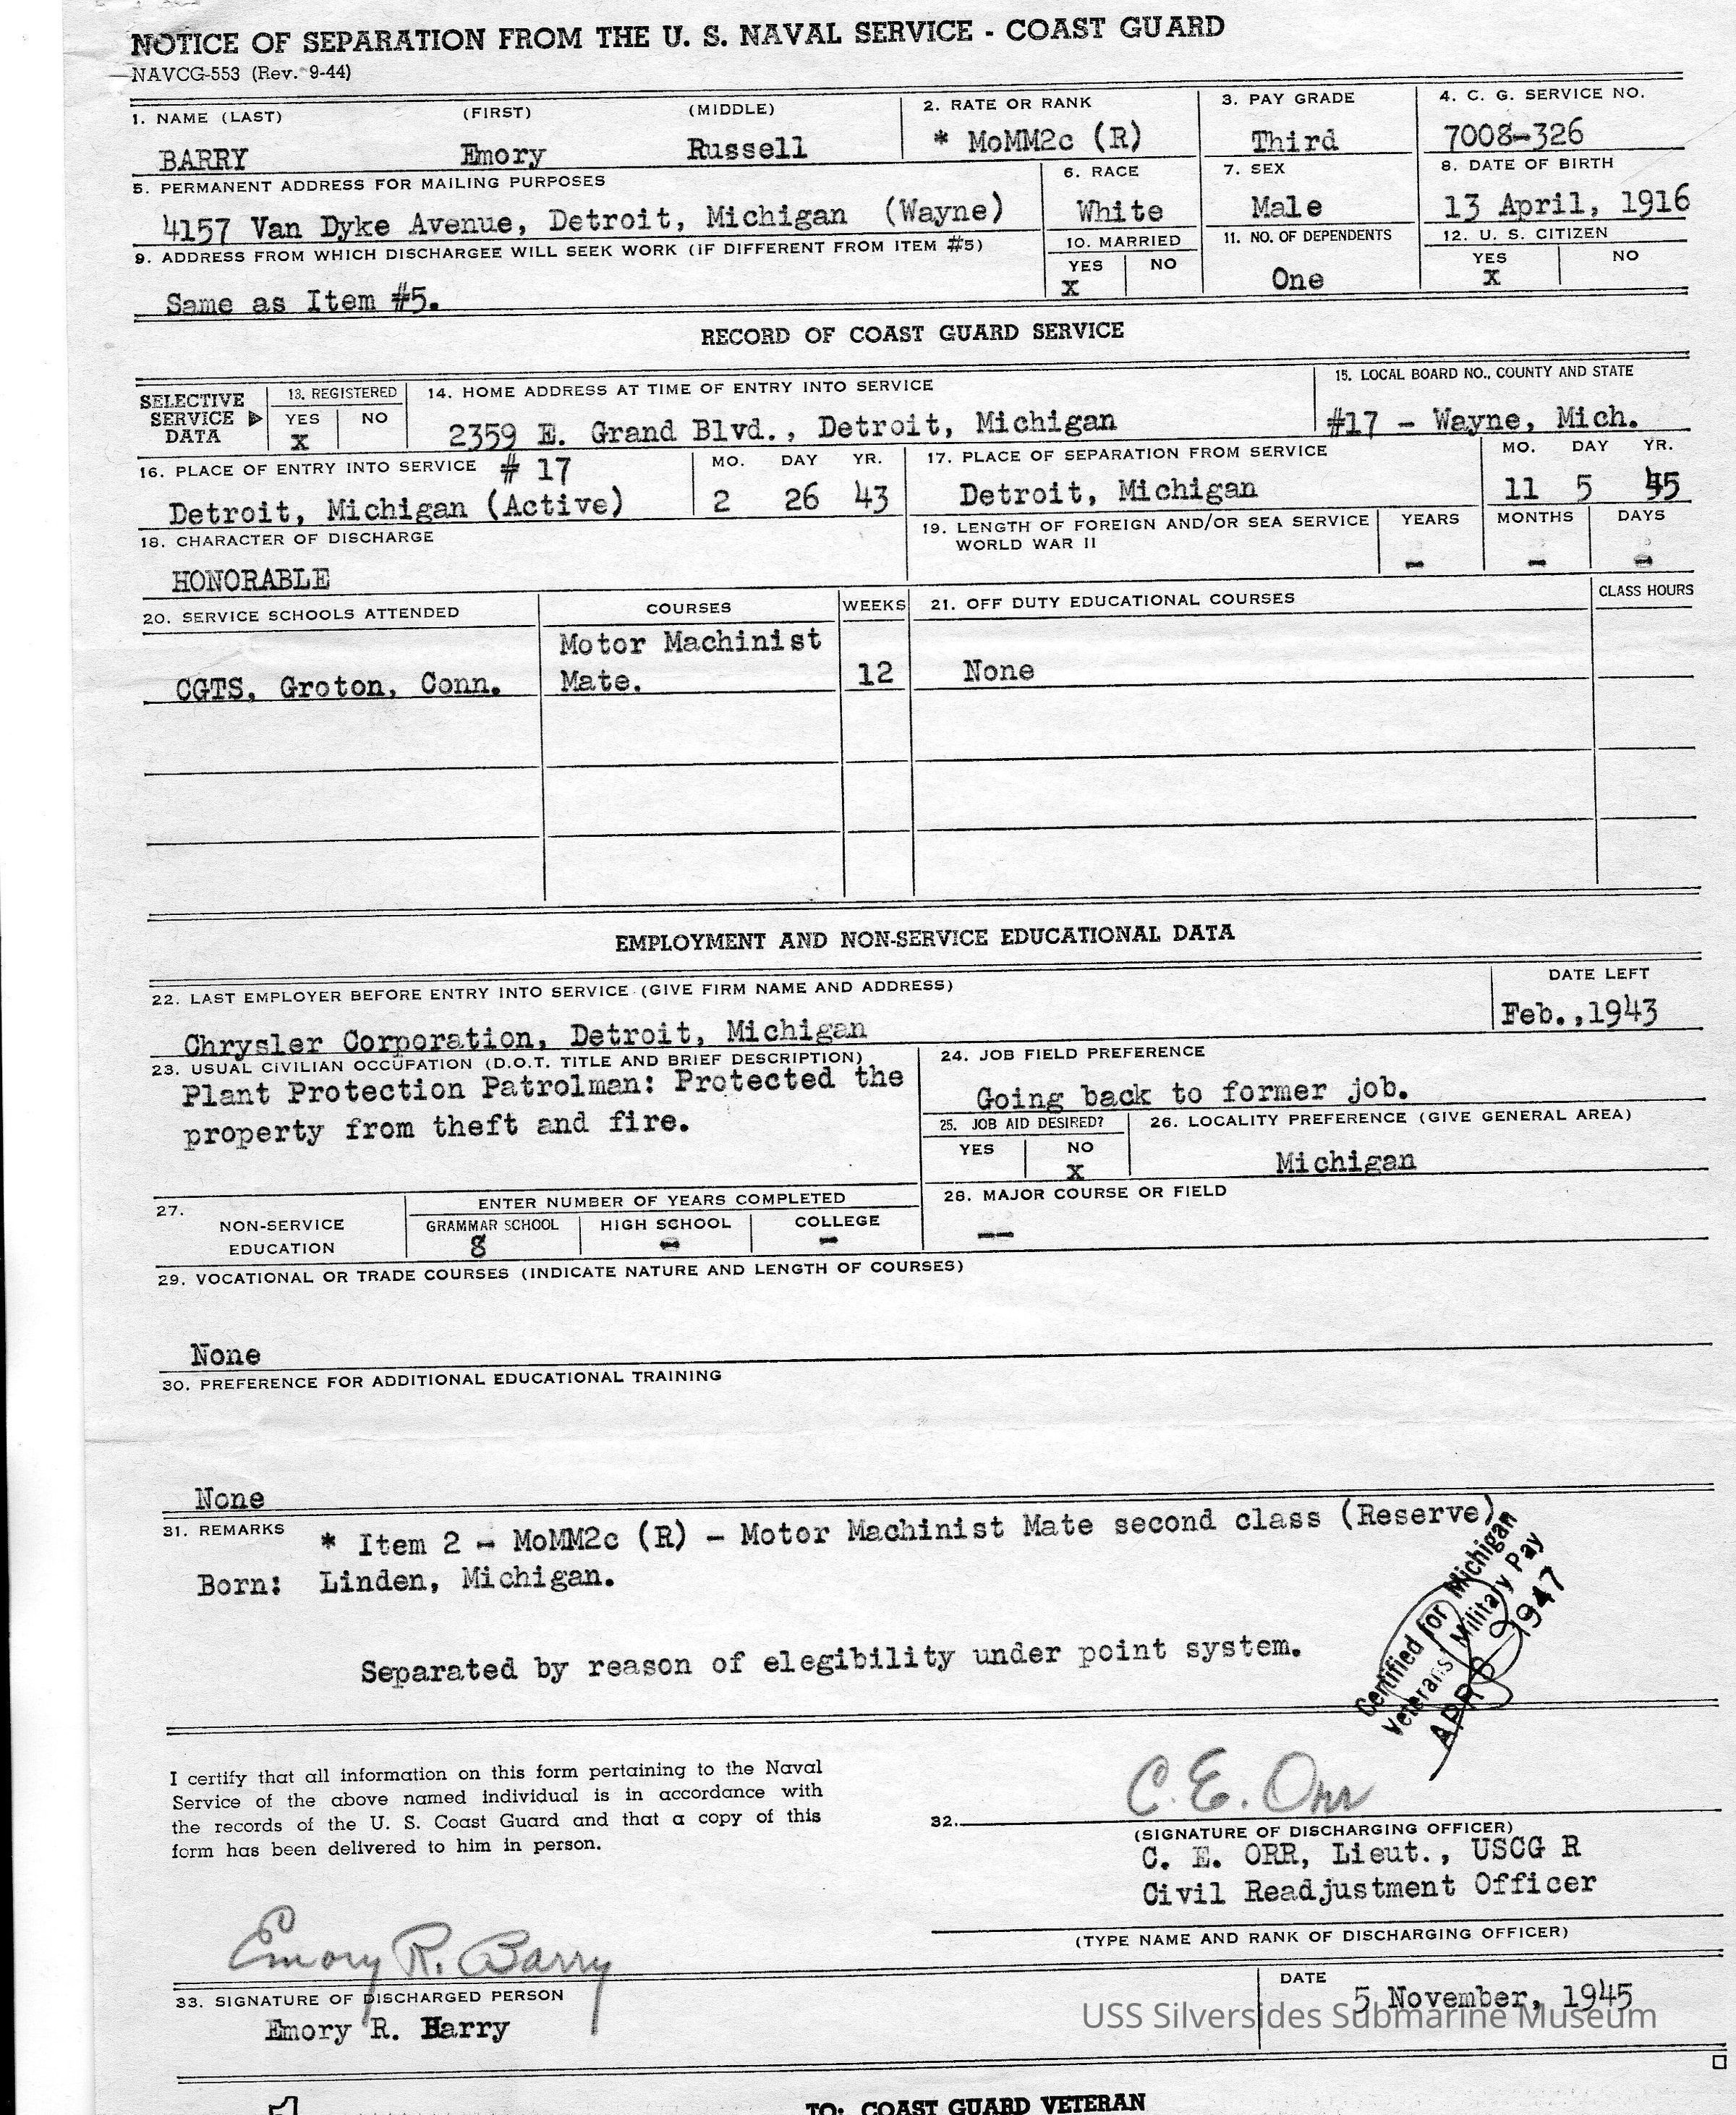 NOTICE OF SEPARATION FROM THE U. S. NAVAL SERVICE - COAST GUARD
NAVCG-553 (Rev. 9-44)
1. NAME (LAST) (FIRST) (MIDDLE)
BARRY Emory Russell
2. RATE OR RANK
* MoMM2c (R)
3. PAY GRADE
Third
4. C. G. SERVICE NO.
7008-326
5. PERMANENT ADDRESS FOR MAILING PURPOSES
4157 Van Dyke Avenue, Detroit, Michigan (Wayne)
6. RACE
White
7. SEX
Male
8. DATE OF BIRTH
13 April, 1916
9. ADDRESS FROM WHICH DISCHARGEE WILL SEEK WORK (IF DIFFERENT FROM ITEM #5)
Same as Item #5.
10. MARRIED
YES NO
X
11. NO. OF DEPENDENTS
One
12. U. S. CITIZEN
YES NO
X
RECORD OF COAST GUARD SERVICE
SELECTIVE
SERVICE
DATA
13. REGISTERED
YES NO
X
14. HOME ADDRESS AT TIME OF ENTRY INTO SERVICE
2359 E. Grand Blvd., Detroit, Michigan
15. LOCAL BOARD NO., COUNTY AND STATE
#17 - Wayne, Mich.
16. PLACE OF ENTRY INTO SERVICE # 17
Detroit, Michigan (Active)
MO. DAY YR.
2 26 43
17. PLACE OF SEPARATION FROM SERVICE
Detroit, Michigan
MO. DAY YR.
11 5 45
18. CHARACTER OF DISCHARGE
HONORABLE
19. LENGTH OF FOREIGN AND/OR SEA SERVICE
WORLD WAR II
YEARS MONTHS DAYS
- - -
20. SERVICE SCHOOLS ATTENDED
CGTS, Groton, Conn.
COURSES
Motor Machinist
Mate.
WEEKS
12
21. OFF DUTY EDUCATIONAL COURSES
None
CLASS HOURS
EMPLOYMENT AND NON-SERVICE EDUCATIONAL DATA
22. LAST EMPLOYER BEFORE ENTRY INTO SERVICE (GIVE FIRM NAME AND ADDRESS)
Chrysler Corporation, Detroit, Michigan
DATE LEFT
Feb.,1943
23. USUAL CIVILIAN OCCUPATION (D.O.T. TITLE AND BRIEF DESCRIPTION)
Plant Protection Patrolman: Protected the
property from theft and fire.
24. JOB FIELD PREFERENCE
Going back to former job.
25. JOB AID DESIRED?
YES NO
X
26. LOCALITY PREFERENCE (GIVE GENERAL AREA)
Michigan
27.
NON-SERVICE
EDUCATION
ENTER NUMBER OF YEARS COMPLETED
GRAMMAR SCHOOL HIGH SCHOOL COLLEGE
8 - -
28. MAJOR COURSE OR FIELD
--
29. VOCATIONAL OR TRADE COURSES (INDICATE NATURE AND LENGTH OF COURSES)
None
30. PREFERENCE FOR ADDITIONAL EDUCATIONAL TRAINING
None
31. REMARKS
* Item 2 - MoMM2c (R) - Motor Machinist Mate second class (Reserve)
Born: Linden, Michigan.
Separated by reason of elegibility under point system.
Certified for Michigan
Veterans Military Pay
APR 1947
I certify that all information on this form pertaining to the Naval
Service of the above named individual is in accordance with
the records of the U. S. Coast Guard and that a copy of this
form has been delivered to him in person.
C. E. Orr
32.
(SIGNATURE OF DISCHARGING OFFICER)
C. E. ORR, Lieut., USCG R
Civil Readjustment Officer
(TYPE NAME AND RANK OF DISCHARGING OFFICER)
Emory R. Barry
33. SIGNATURE OF DISCHARGED PERSON
Emory R. Barry
DATE
5 November, 1945
USS Silversides Submarine Museum
TO: COAST GUARD VETERAN